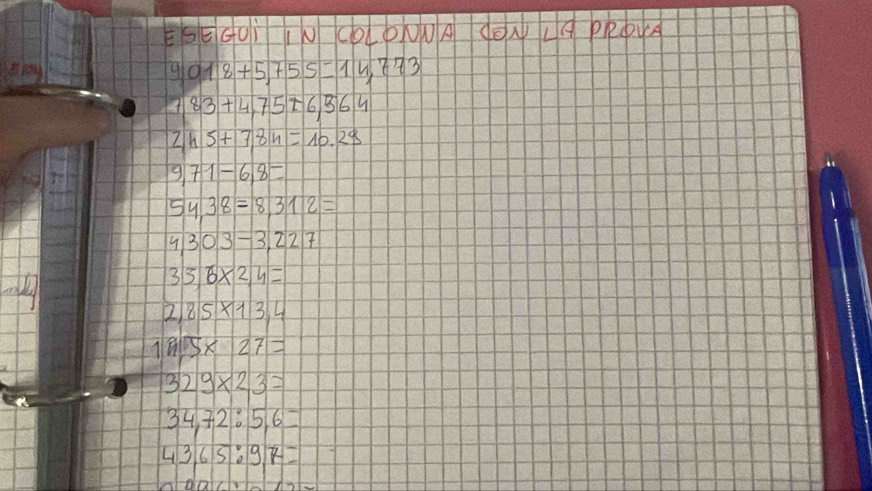 ESEGUI IN COLONNA CON LA PROVA
9,018+5,755=14,773
1,83+4,75+6,564
2,45+7,84=10.29
9,71-6,8=
54,38=8,312=
4,303-3,227
35,6×2,4=
2,85×13,4
14,5× 27=
329×2,3=
34,72:5,6=
43,65:9,7=